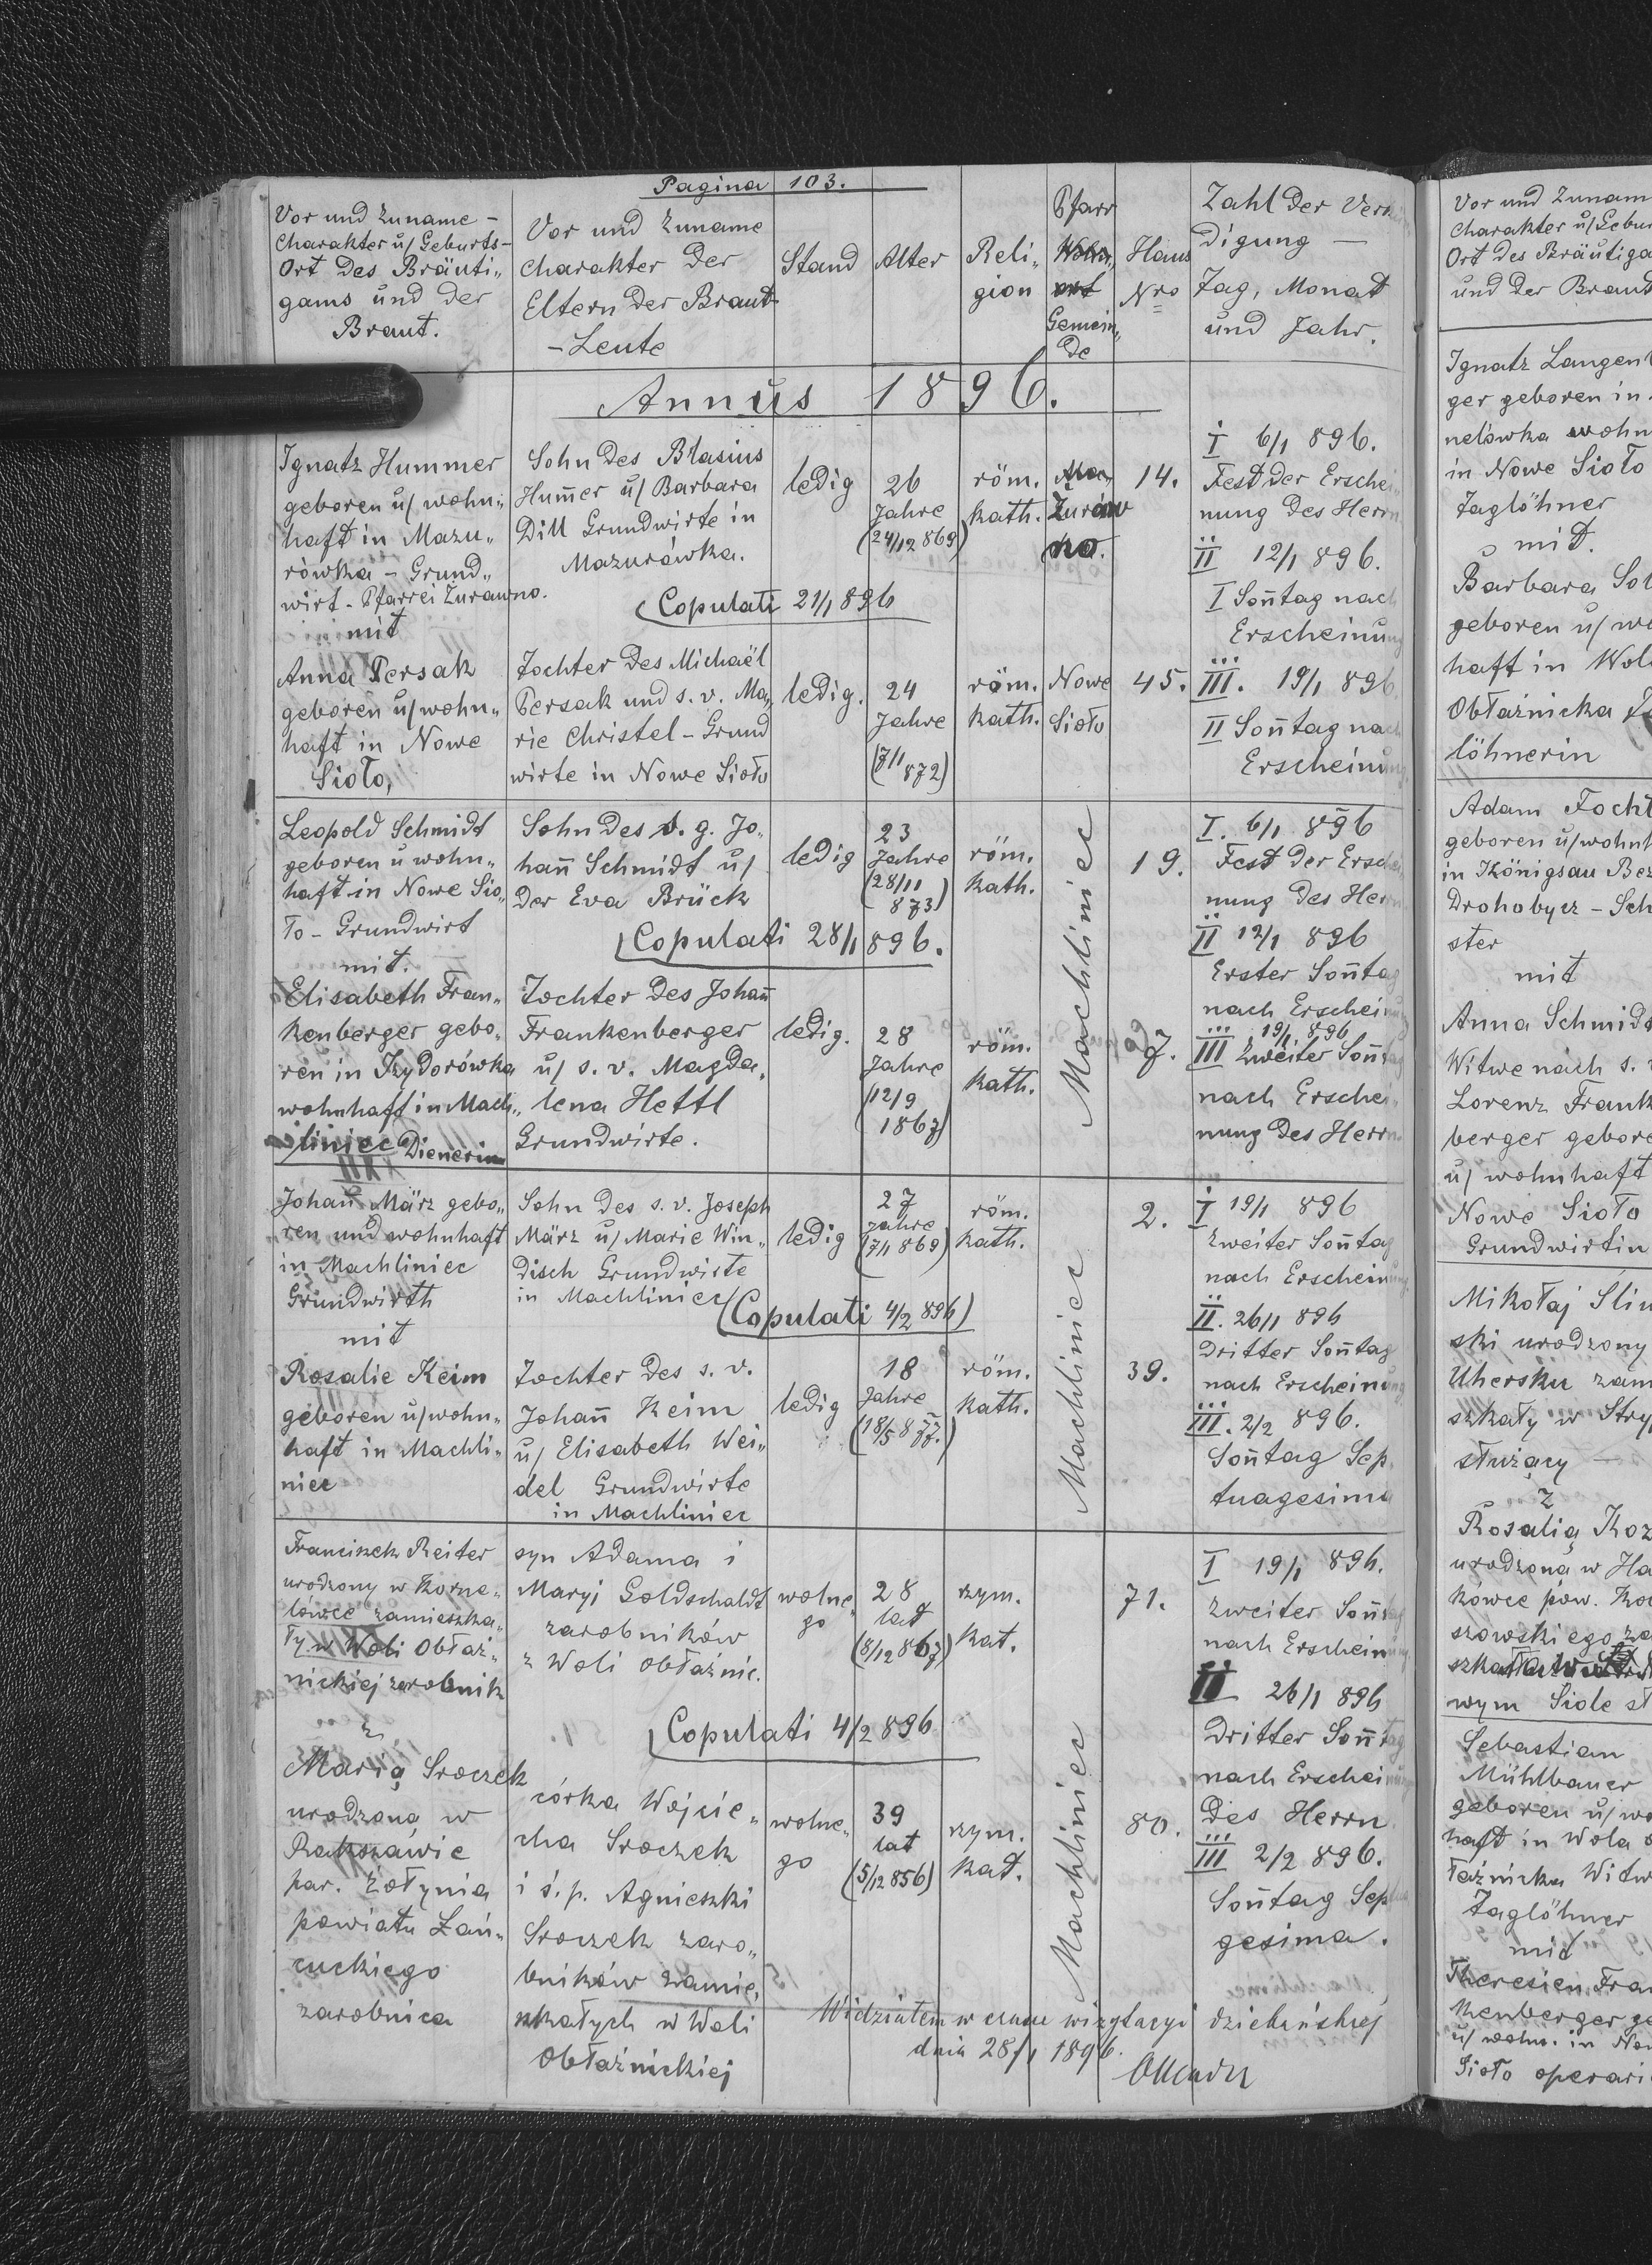 Pagina 103.
Vor und Zuname -
Charakter u/ Geburts-
Ort des Bräuti-
gams und der
Braut.
Vor und Zuname
Charakter der
Eltern der Braut
-Leute
Stand
Alter
Reli-
gion
Pfarr
Gemein-
de
Haus
Nro
Zahl der
digung -
Tag, Monat
und Jahr.
Annus 1896.
Ignatz Hummer
geboren u/ wohn-
haft in Mazu-
rówka - Grund-
wirt - Pfarrei Żurawno.
mit
Sohn des Blasius
Hum̄er u/ Barbara
Dill Grundwirte in
Mazurówka.
ledig
26
Jahre
(24/12 869)
röm.
kath.
Żuraw
no.
14.
I 6/1 896.
Fest der Erschei-
nung des Herrn
II 12/1 896.
I Son̄tag nach
Erscheinung
Copulati 21/1 896
Anna Persak
geboren u/ wohn-
haft in Nowe
Sioło,
Tochter des Michaël
Persak und s. v. Ma-
rie Christel - Grund
wirte in Nowe Sioło
ledig.
24
Jahre
(7/1
872)
röm.
kath.
Nowe
Sioło
45.
III. 19/1 896
II Son̄tag nach
Erscheinung
Leopold Schmidt
geboren u wohn-
haft in Nowe Sio-
ło - Grundwirt
mit.
Sohn des v. g. Jo-
han̄ Schmidt u/
der Eva Brück
ledig
23
Jahre
(28/11
873)
röm.
kath.
Machliniec
19.
I. 6/1 896
Fest der Erschei-
nung des Herrn
II 12/1 896
Erster Son̄tag
nach Erscheinung
Copulati 28/1 896.
Elisabeth Fran-
kenberger gebo-
ren in Izydorówka
wohnhaft in Mach-
liniec Dienerin
Tochter des Johan̄
Frankenberger
u/ s. v. Magda-
lena Hettl
Grundwirte.
ledig.
28
Jahre
(12/9
1867)
röm.
kath.
7.
III 19/1 896
Zweiter Son̄tag
nach Erschei-
nung des Herrn
Johan̄ März gebo-
ren und wohnhaft
in Machliniec
Grundwirth
mit
Sohn des s. v. Joseph
März u/ Marie Win-
disch Grundwirte
in Machliniec
ledig
27
Jahre
(7/1 869)
röm.
kath.
Machliniec
2.
I 19/1 896
Zweiter Son̄tag
nach Erscheinung
II. 26/1 896
Dritter Son̄tag
nach Erscheinung
Copulati 4/2 896)
Rosalie Keim
geboren u/ wohn-
haft in Machli-
niec
Tochter des s. v.
Johan̄ Keim
u/ Elisabeth Wei-
del Grundwirte
in Machliniec
ledig
18
Jahre
(18/5 877.)
röm.
kath.
39.
III. 2/2 896.
Son̄tag Sep-
tuagesima
Franciszek Reiter
urodzony w Korne-
lówce zamieszka-
ły w Woli Obłaź-
nickiej zarobnik
z
syn Adama i
Maryi Goldschaldt
zarobników
z Woli Obłaźnic.
wolne-
go
28
lat
(8/12 867)
rzym.
kat.
Machliniec
71.
I 19/1 896.
Zweiter Son̄tag
nach Erscheinung
II 26/1 896
Dritter Son̄tag
nach Erscheinung
des Herrn
Copulati 4/2 896
Marią Sroczek
urodzoną w
Rakszawie
par. Żołynia
powiatu Łań-
cuckiego
zarobnica
córka Wojcie-
cha Sroczek
i ś. p. Agnieszki
Sroczek zaro-
bników zamie-
szkałych w Woli
Obłaźnickiej
wolne-
go
39
lat
(5/12 856)
rzym.
kat.
80.
III 2/2 896.
Son̄tag Septua
gesima.
Widziałem w czasie wizytacyi dziekańskiej
dnia 28/1 1896.
Vor und Zunam
Charakter u/ Gebur
Ort des Bräutiga
und der Braut
Ignatz Langen
ger geboren in
nelówka wohn
in Nowe Sioło
Taglöhner
mit.
Barbara Sol
geboren u/ wo
haft in Wol
Obłaźnicka
löhnerin
Adam Focht
geboren u/ wohnh
in Königsau Bez
Drohobycz - Sch
ster
mit
Anna Schmidt
Witwe nach s.
Lorenz Frank
berger gebore
u/ wohnhaft
Nowe Sioło
Grundwirtin
Mikołaj Śliw
ski urodzony
Uhersku zam
szkały w Stry
służący -
z
Rosalią Koz
urodzoną w Ha
kówce pow. Kol
szowskiego za
wym Siole sł
Sebastian
Mühlbauer
geboren u/ wo
haft in Wola O
łaźnicka Witw
Taglöhner
mit
Theresien Fran
kenberger ge
u/ wohn. in Now
Sioło operari